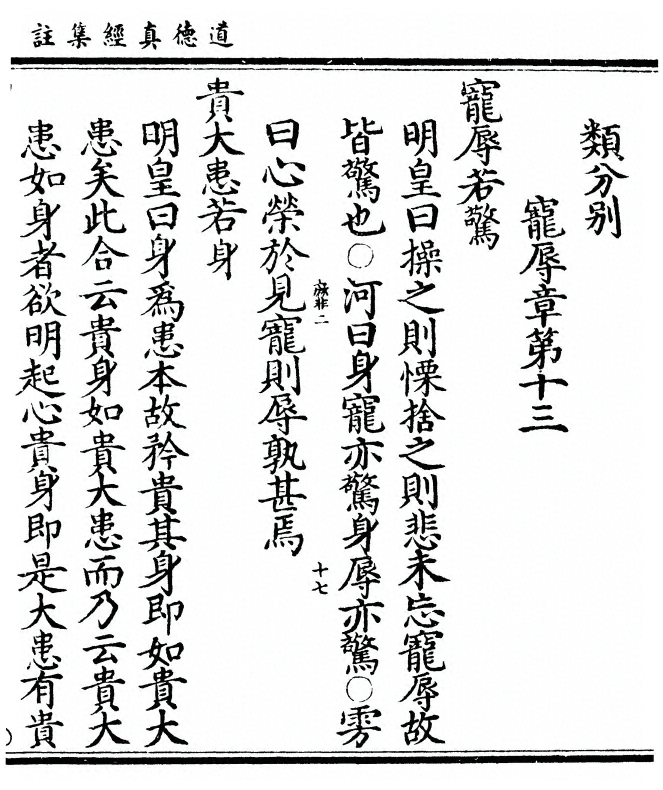 道德真經集註
類分别
寵辱章第十三
寵辱若驚
明皇曰操之則慄捨之則悲未忘寵辱故
皆驚也○河曰身寵亦驚身辱亦驚○雱
十七
曰心榮於見寵則辱孰甚焉
貴大患若身
明皇曰身爲患本故矜貴其身即如貴大
患矣此合云貴身如貴大患而乃云貴大
患如身者欲明起心貴身即是大患有貴